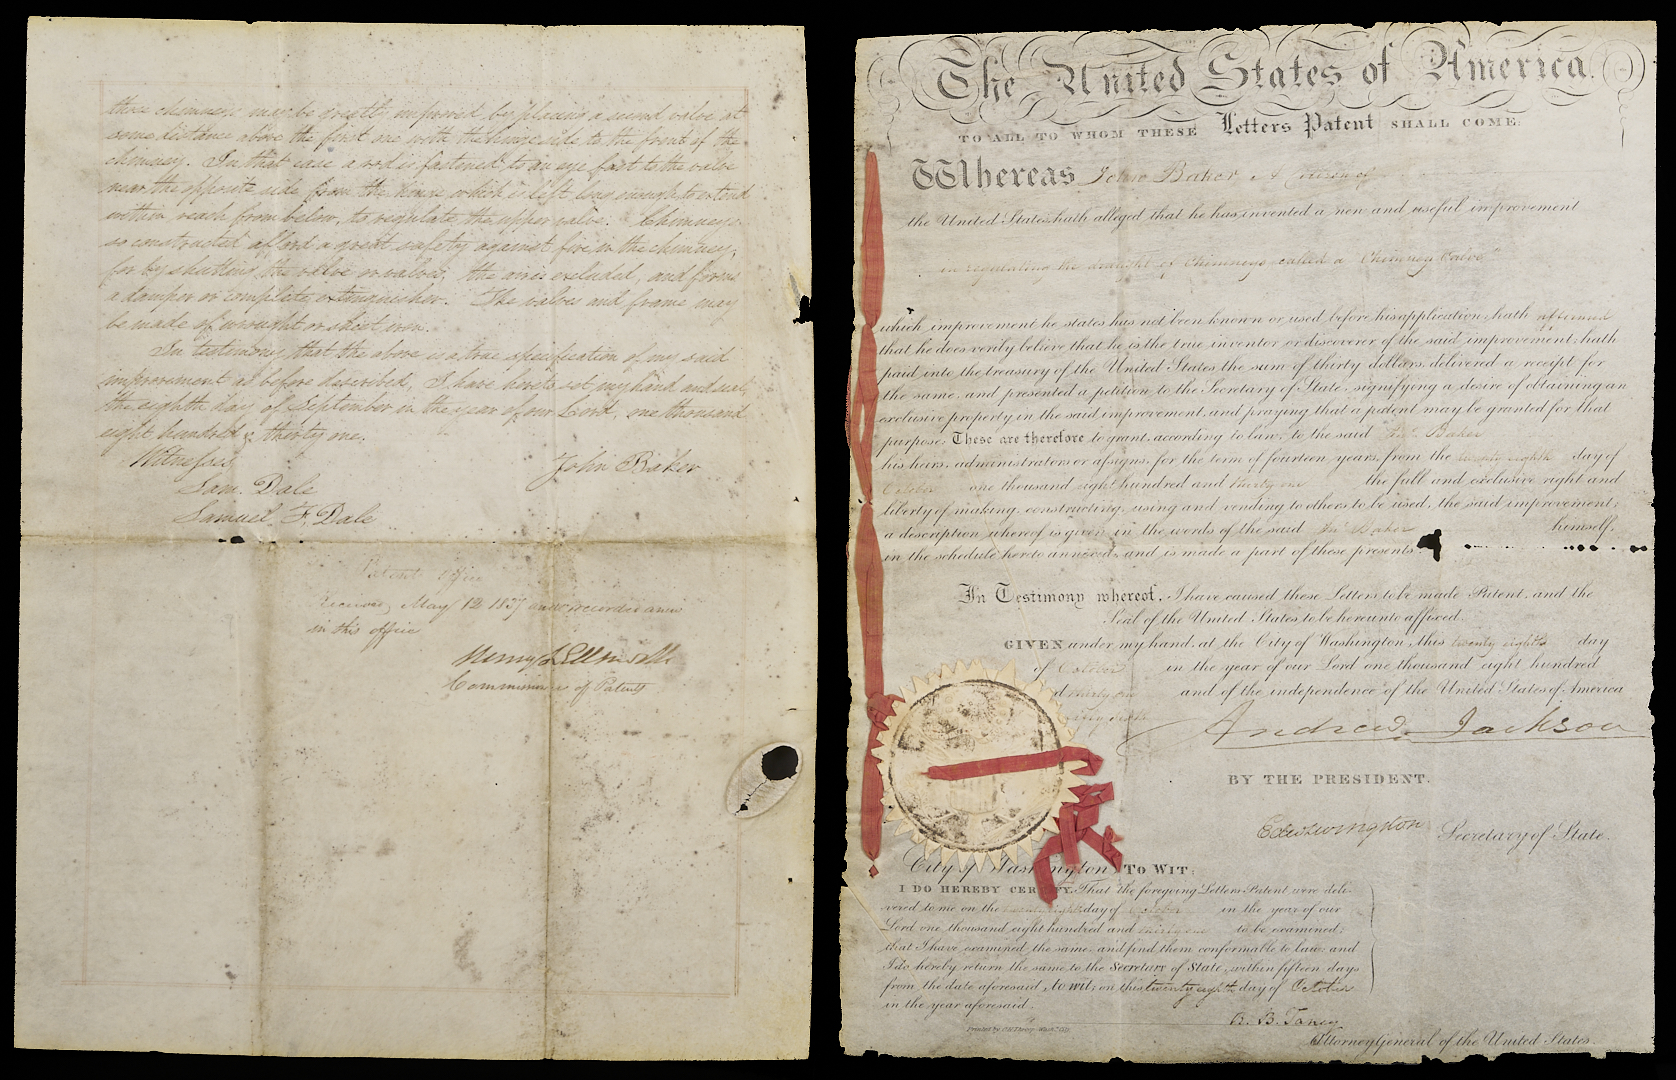 these chimneys may be greatly improved by placing a second valve at
some distance above the first one with the hinge side to the front of the
chimney. In that case a rod is fastened to an eye fast to the valve
near the opposite side from the hinge which is left long enough to extend
within reach from below, to regulate the upper valve. Chimneys
so constructed afford a great safety against fire in the chimney;
for by shutting the valve or valves, the air is excluded, and forms
a damper or complete extinguisher. The valves and frame may
be made of wrought or sheet iron.
In testimony that the above is a true specification of my said
improvement as before described, I have hereto set my hand and seal,
the eighth day of September in the year of our Lord, one thousand
eight hundred & thirty one.
Witnesses
John Baker
Sam. Dale
Samuel F. Dale
Patent Office
Received May 12 1837 and recorded anew
in this office
Henry L Ellsworth
Commissioner of Patents
The United States of America.
TO ALL TO WHOM THESE Letters Patent SHALL COME:
Whereas John Baker A Citizen of
the United States, hath alleged that he has invented a new and useful improvement
in regulating the draught of Chimneys called a "Chimney Valve"
which improvement he states has not been known or used before his application, hath affirmed
that he does verily believe that he is the true inventor or discoverer of the said improvement, hath
paid into the treasury of the United States, the sum of thirty dollars, delivered a receipt for
the same, and presented a petition to the Secretary of State, signifying a desire of obtaining an
exclusive property in the said improvement, and praying that a patent may be granted for that
purpose: These are therefore to grant, according to law, to the said Jno. Baker
his heirs, administrators or assigns, for the term of fourteen years, from the twenty eighth day of
October one thousand eight hundred and thirty one the full and exclusive right and
liberty of making, constructing, using and vending to others to be used, the said improvement;
a description whereof is given in the words of the said Jno Baker himself,
in the schedule hereto annexed, and is made a part of these presents.
In Testimony whereof, I have caused these Letters to be made Patent, and the
Seal of the United States to be hereunto affixed.
GIVEN under my hand, at the City of Washington, this twenty eighth day
of October in the year of our Lord one thousand eight hundred
thirty one and of the independence of the United States of America
fifty sixth
Andrew Jackson
BY THE PRESIDENT.
Edw Livingston Secretary of State.
City of Washington, TO WIT:
I DO HEREBY CERTIFY, That the foregoing Letters Patent were deli-
vered to me on the twenty eighth day of October in the year of our
Lord one thousand eight hundred and thirty one to be examined;
that I have examined the same, and find them conformable to law, and
I do hereby return the same to the Secretary of State, within fifteen days
from the date aforesaid, to wit: on this twenty eighth day of October
in the year aforesaid.
R. B. Taney
Attorney General of the United States.